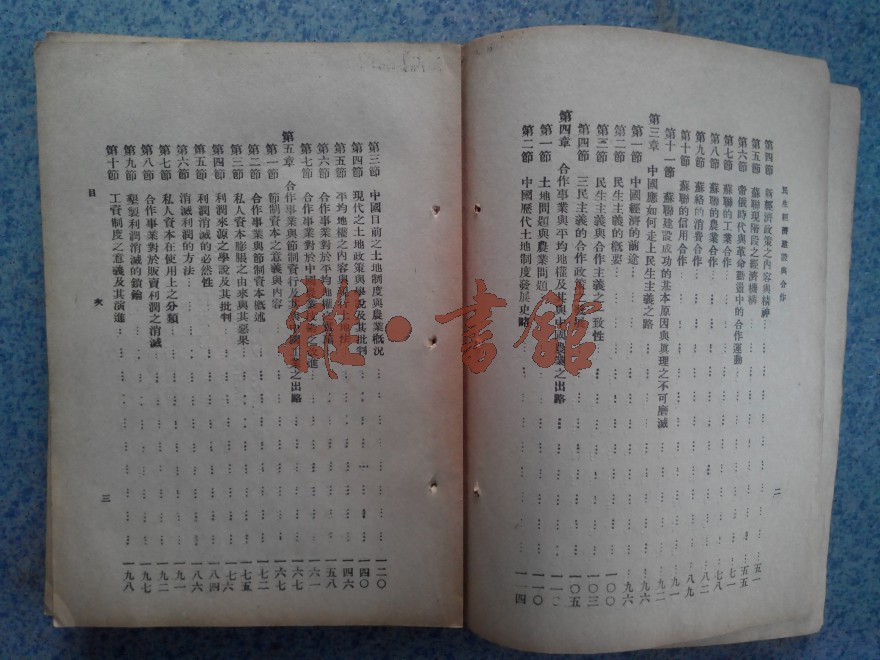 民生經濟建設與合作
二
第四節 新經濟政策之內容與精神 五一
第五節 蘇聯現階段之經濟機構 五五
第六節 舊俄時代與革命動盪中的合作運動 七一
第七節 蘇聯的工業合作 七八
第八節 蘇聯的農業合作 八二
第九節 蘇聯的消費合作 八九
第十節 蘇聯的信用合作 九一
第十一節 蘇聯建設成功的基本原因與眞理之不可磨滅 九二
第三章 中國應如何走上民生主義之路 九六
第一節 中國經濟的前途 九六
第二節 民生主義的概要 一〇〇
第三節 民生主義與合作主義之一致性 一〇三
第四節 三民主義的合作政策 一〇五
第四章 合作事業與平均地權及其與中國農業之出路 一一〇
第一節 土地問題與農業問題 一一〇
第二節 中國歷代土地制度發展史略 一一四
第三節 中國目前之土地制度與農業概況 一二〇
第四節 現代之土地政策與學說及其批判 一四〇
第五節 平均地權之內容與現行土地法 一四六
第六節 合作事業與平均地權 一五八
第七節 合作事業對於中國農業技術之改進 一六一
第五章 合作事業與節制資本及其與中國工業之出路 一六七
第一節 節制資本之意義與內容 一六七
第二節 合作事業與節制資本概述 一七二
第三節 私人資本膨脹之由來與其惡果 一七五
第四節 利潤來源之學說及其批判 一七六
第五節 利潤消滅的必然性 一八四
第六節 消滅利潤的方法 一八六
第七節 私人資本在使用上之分類 一九一
第八節 合作事業對於販賣利潤之消滅 一九二
第九節 墾製利潤消滅的鎖鑰 一九七
第十節 工資制度之意義及其演進 一九八
目 次
三
書館